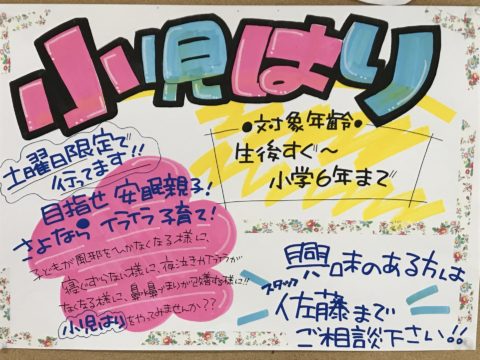 小児はり
●対象年齢●
生後すぐ〜
小学6年まで
土曜日限定で
行ってます!!
目指せ 安眠親子!
さよなら イライラ子育て!
子どもが風邪をひかなくなる様に、
寝しずらない様に、夜泣きやイライラが
なくなる様に、
小児はりをやってみませんか??
興味のある方は
スタッフ
佐藤まで
ご相談下さい!!